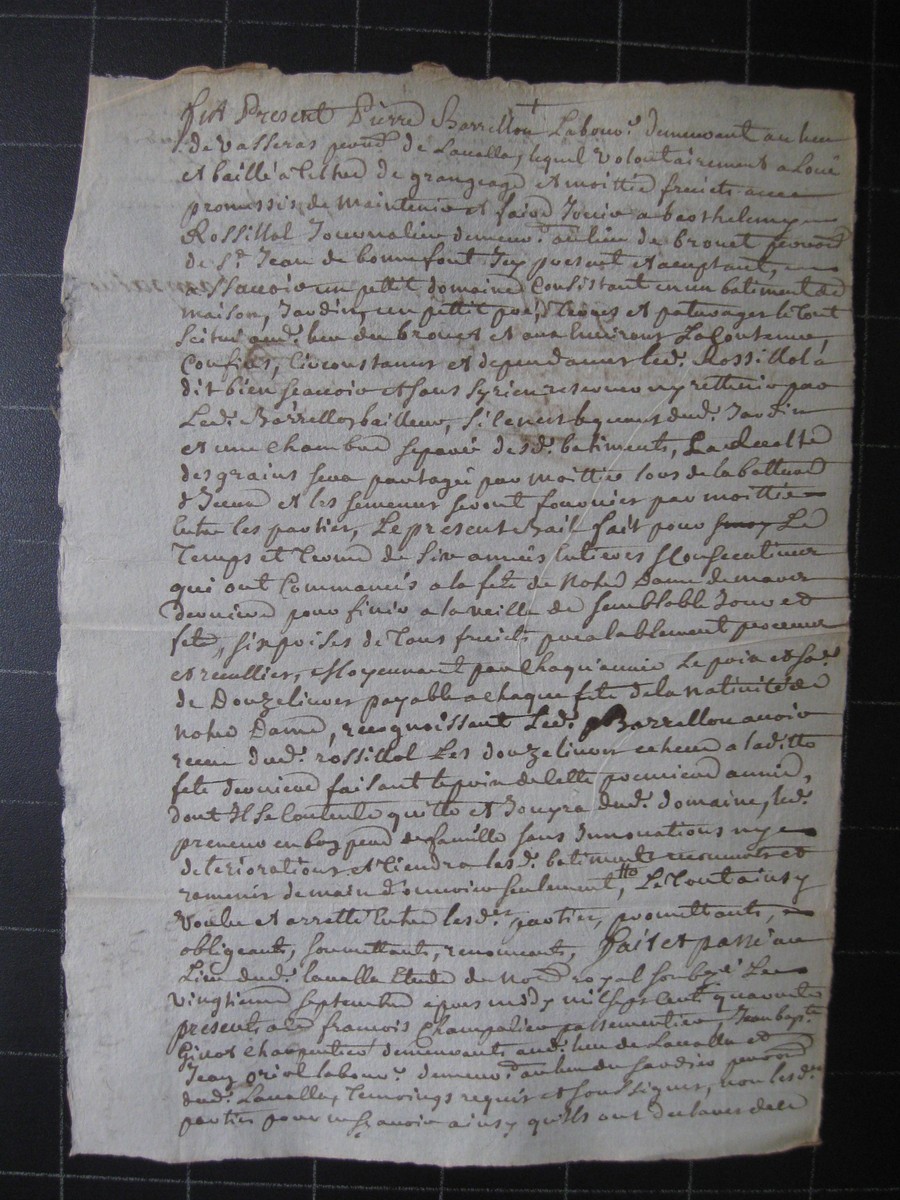 Fut Present Pierre Barrellon Labour.r demeurant au lieu
de Vasseras paroisse de Lavalla, lequel volontairement a Loué
et baillé a tiltre de grangeage et moittié fruits avec
promesses de maintenir et faire Jouir a berthelemy
Rossillol Journalier demeur.t au lieu de brouet parroisse
de S.t Jean de bonnefont Icy present et acceptant,
assavoir un pettit domaine Consistant en un batiment de
maison, Jardin, un pettit pré, terres et paturages le tout
scitué aud. lieu du brouet et aux Environs La Contenue,
Confins, Circonstances et dependances led. Rossillol a
dit bien sçavoir et sans sy rien reserver ny rettenir par
Led. Barrellon bailleur, Si ce n'est le quart dud. Jardin
et une chambre separée desd. batiments, La Recolte
des grains sera partagée par moittié lors de la batture
d'Iceux et les semences seront fournies par moittié
Entre les parties, Le present Bail fait pour Le
Temps et terme de Six années Entieres et Consecutives
qui ont Commancés a la fete de Notre Dame de mars
derniere pour finir a la veille de semblable Jour et
fete, six prises de tous fruits prealablement perceues
et recullies, Moyennant par Chaqu'année Le prix et so.e
de Douze Livres payable a chaque fete de la nativité de
Notre Dame, recognoissant Led. Barrellon avoir
receu dud. rossillol Les douze livres echeue a laditte
fete derniere faisant le prix de cette premiere année,
dont Il se Contente quitte et Jouyra dud. domaine, led.
preneur en bon pere de famille sans Innovations ny
deteriorations et tiendra lesd. batiments recouverts et
ramenés de main d'ouvrier seulement, Le Tout ainsy
Voulu et arretté Entre lesd. parties, promettants,
obligeants, soumettants, renonçants, fait et passé au
Lieu dud. lavalla Etude du No.re royal soubsg.é Le
vingtieme septembre apres midy mil sept cent quarante
presents a ce francois Champalier passementier Jean bap.te
Ginot charpentier demeurants aud. lieu de Lavalla et
Jean oriol labour.r demeur.t au lieu du Sardier parroisse
dud. Lavalla, Temoings requis et soussignés, non lesd.
parties pour ne sçavoir ainsy qu'ils ont declarés de ce